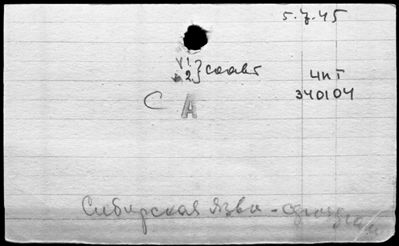 5.7.45
V1.
2. } соавт
ЧКТ
340104
С А
Сибирская язва -